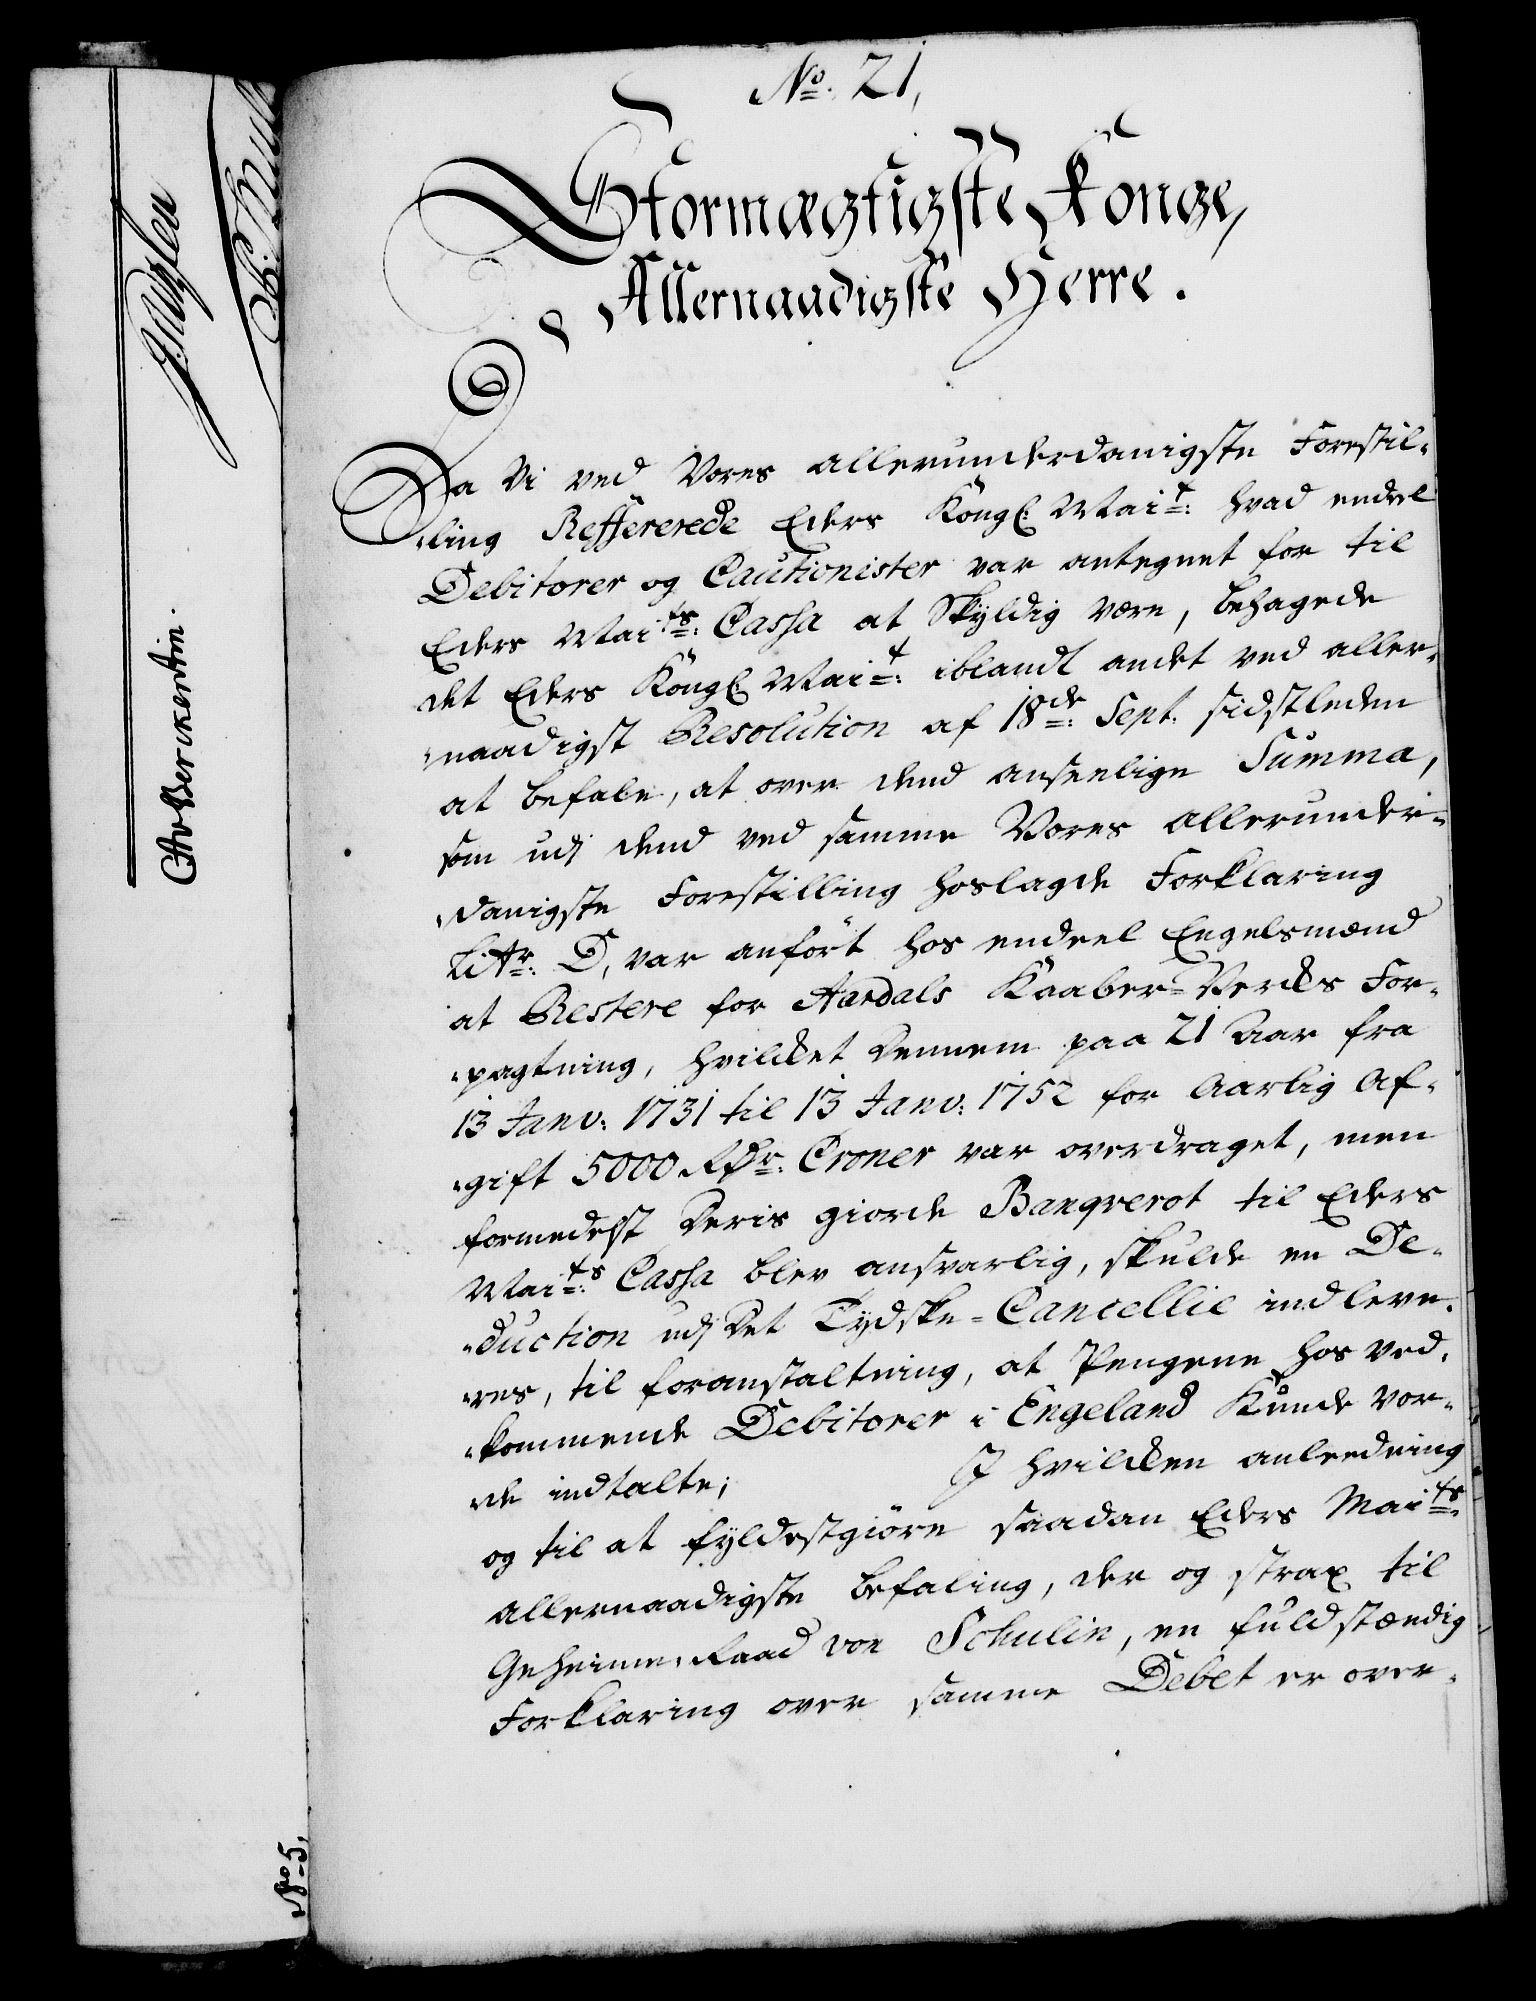 No. 21,
Stormægtigste Konge,
Allernaadigste Herre.
Da Vi ved Vores allerunderdanigste Forestil-
ling Reffererede Eders Kongl. Mait: hvad endeel
Debitorer og Cautionister var antegnet for til
Eders Maits: Cassa at Skyldig være, behagede
det Eders Kongl. Mait: iblandt andet ved aller-
naadigst Resolution af 18de: Sept. sidstleden
at befale, at over dend anseelige Summa,
som udj dend ved samme Vores allerunder-
danigste Forestilling hoslagde Forklaring
Littr: D, var anført hos endeel Engelsmænd
at Restere for Aardals Kaaber-Verks For-
pagtning, hvilket dennem paa 21 Aar fra
13 Janv: 1731 til 13 Janv: 1752 for Aarlig Af-
gift 5000 Rdr: Croner var overdraget, men
formedelst deris giorde Banqverot til Eders
Maits: Cassa blev ansvarlig, skulde en De-
duction udj det Tydske-Cancellie indleve-
res, til foranstaltning, at Pengene hos ved-
kommende Debitorer i Engeland Kunde vor-
de indtalte; J hvilken anleedning
og til at fyldestgiøre saadan Eders Maits:
allernaadigste befaling, der og strax til
Geheime-Raad von Schulin, en fuldstændig
Forklaring over samme Debet er over-
CAvBerckentin.
No 5,